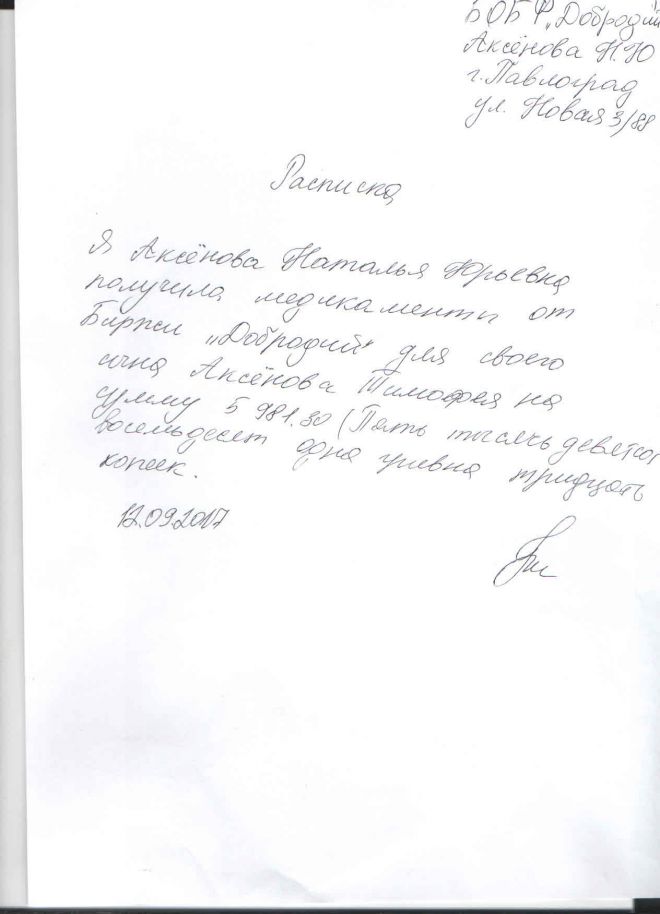 БОБФ „Добродий
Аксёнова Н.Ю
г. Павлоград
ул. Новая 3/88
Расписка
Я Аксёнова Наталья Юрьевна
получила медикаменты от
Биржи „Добродий" для своего
сына Аксёнова Тимофея на
сумму 5 981.30 (Пять тысячь девятсот
восемьдесят одна гривна тридцать
копеек.
12.09.2017